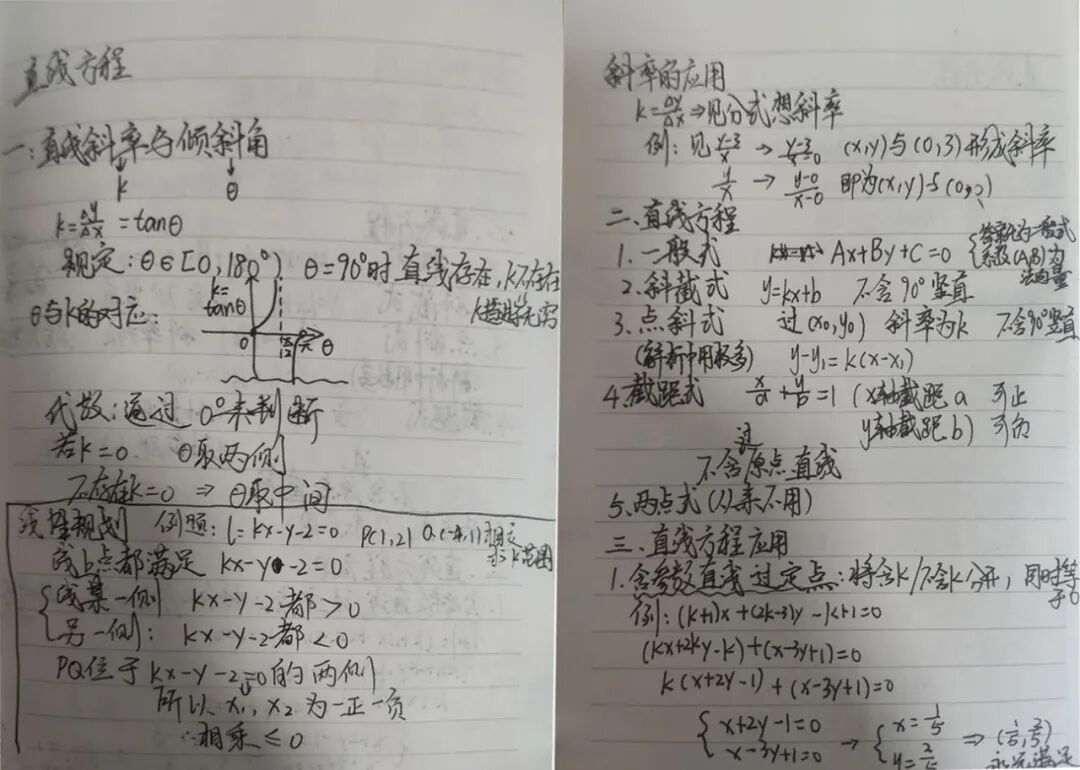 直线方程
一:直线斜率与倾斜角
k θ
k=Δy/Δx=tanθ
规定:θ∈[0,180°) θ=90°时直线存在,k不存在
θ与k的对应:
k=tanθ
0 θ
代数:通过0°来判断
若k=0 θ取两侧
不存在k=0 ⇒ θ取中间
线性规划 例题:l=kx-y-2=0 P(1,2) Q(-4,1)相交
求k范围
线上点都满足 kx-y-2=0
线某一侧 kx-y-2都>0
另一侧: kx-y-2都<0
PQ位于kx-y-2=0的两侧
所以x₁,x₂为一正一负
∴相乘≤0
斜率的应用
k=Δy/Δx⇒见分式想斜率
例:见(y-3)/x → (y-3)/(x-0) (x,y)与(0,3)形成斜率
y/x → (y-0)/(x-0) 即为(x,y)与(0,
二、直线方程
1.一般式 Ax+By+C=0 答案化为一般式
系数(A,B)为
法向量
2.斜截式 y=kx+b 不含90°竖直
3.点斜式 过(x₀,y₀) 斜率为k 不含90°竖直
(解析中用极多) y-y₁=k(x-x₁)
4.截距式 x/a+y/b=1 (x轴截距a 可正
y轴截距b) 可负
不含过原点直线
5.两点式(从来不用)
三、直线方程应用
1.含参数直线过定点:将含k/不含k分开,同时等于0
例:(k+1)x+(2k-3)y-k+1=0
(kx+2ky-k)+(x-3y+1)=0
k(x+2y-1)+(x-3y+1)=0
x+2y-1=0 → x=1/5 ⇒ (1/5,2/5)
x-3y+1=0 y=2/5 永远满足